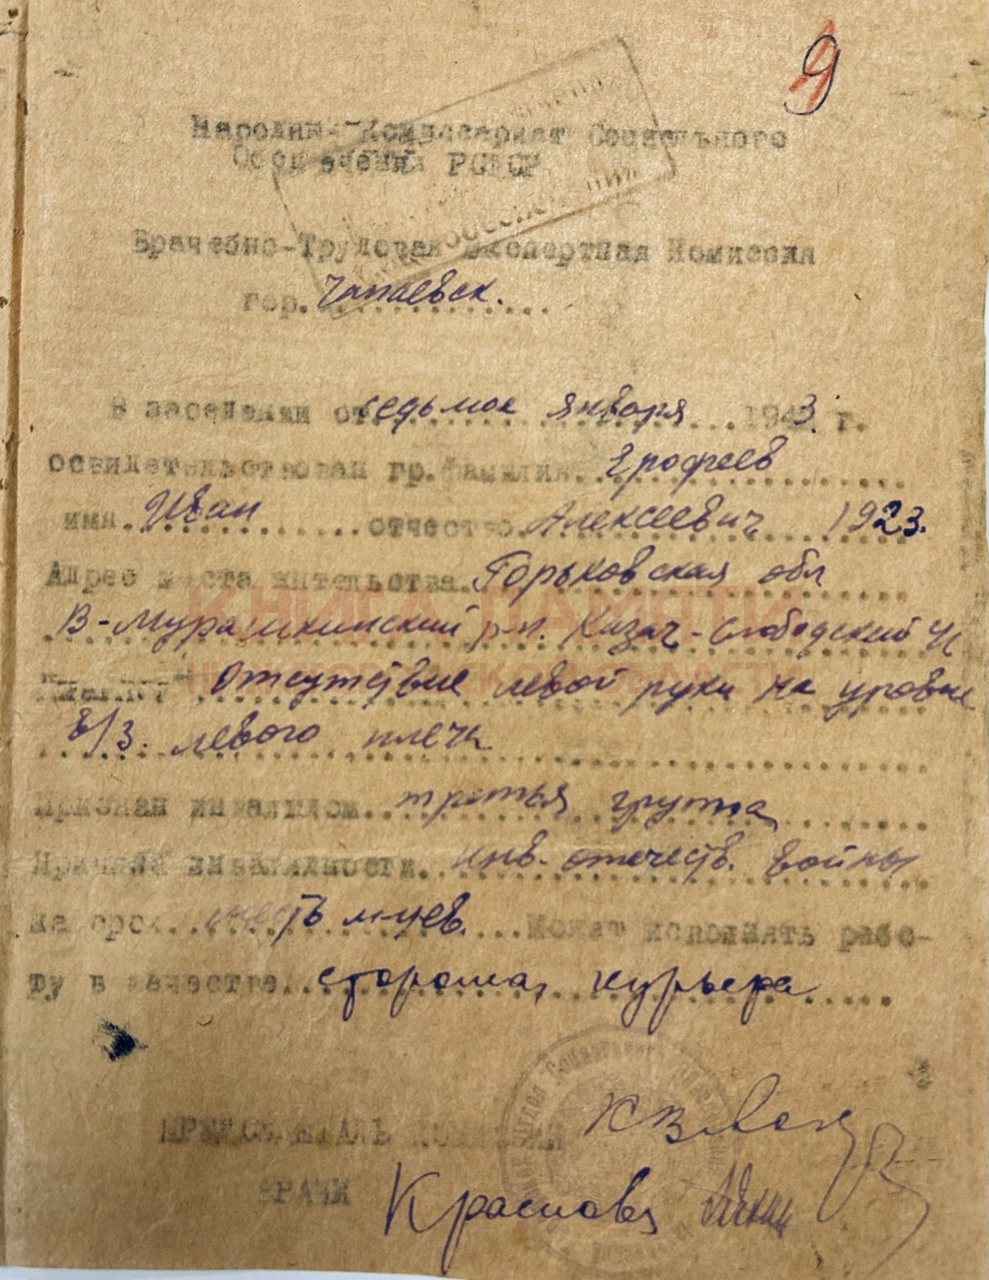 9
Народный Комиссариат Социального
Обеспечения РСФСР
Врачебно-Трудовая Экспертная Комиссия
гор. Чапаевск.
В заседании от седьмое января 1943 г.
освидетельствован гр. фамилия Ерофеев
имя Иван отчество Алексеевич 1923.
Адрес места жительства Горьковская обл
В-Мурашкинский р-н. Казач-Слободский
КНИГА ПАМЯТИ
НИЖЕГОРОДСКОЙ ОБЛАСТИ
Отсутствие левой руки на уровне
в/3. левого плеча
Признан инвалидом третья группа
Причина инвалидности инв. отечеств. войны
На срок шесть м-цев. Может исполнять рабо-
ту в качестве сторожа, курьера
ПРЕДСЕДАТЕЛЬ КОМИССИИ
ВРАЧИ Краснова